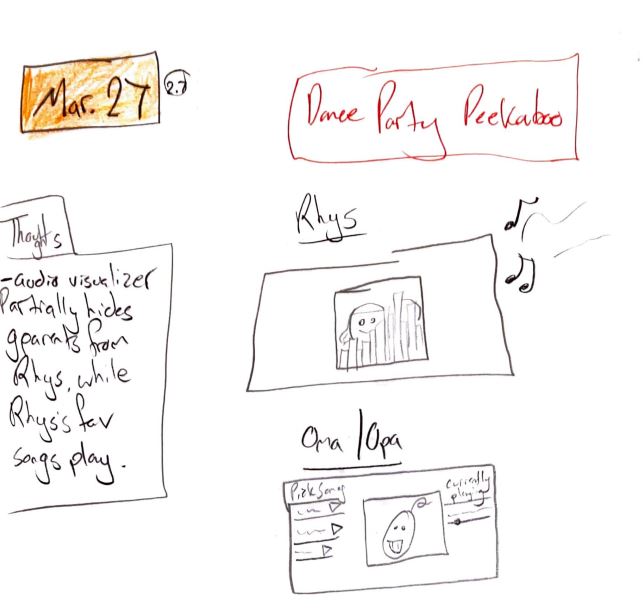 Mar. 27
2.7
Dance Party Peekaboo
Thoughts
-audio visualizer
Partially hides
gparents from
Rhys, while
Rhys's fav
songs play.
Rhys
Oma/Opa
Pick Song
currently
playing